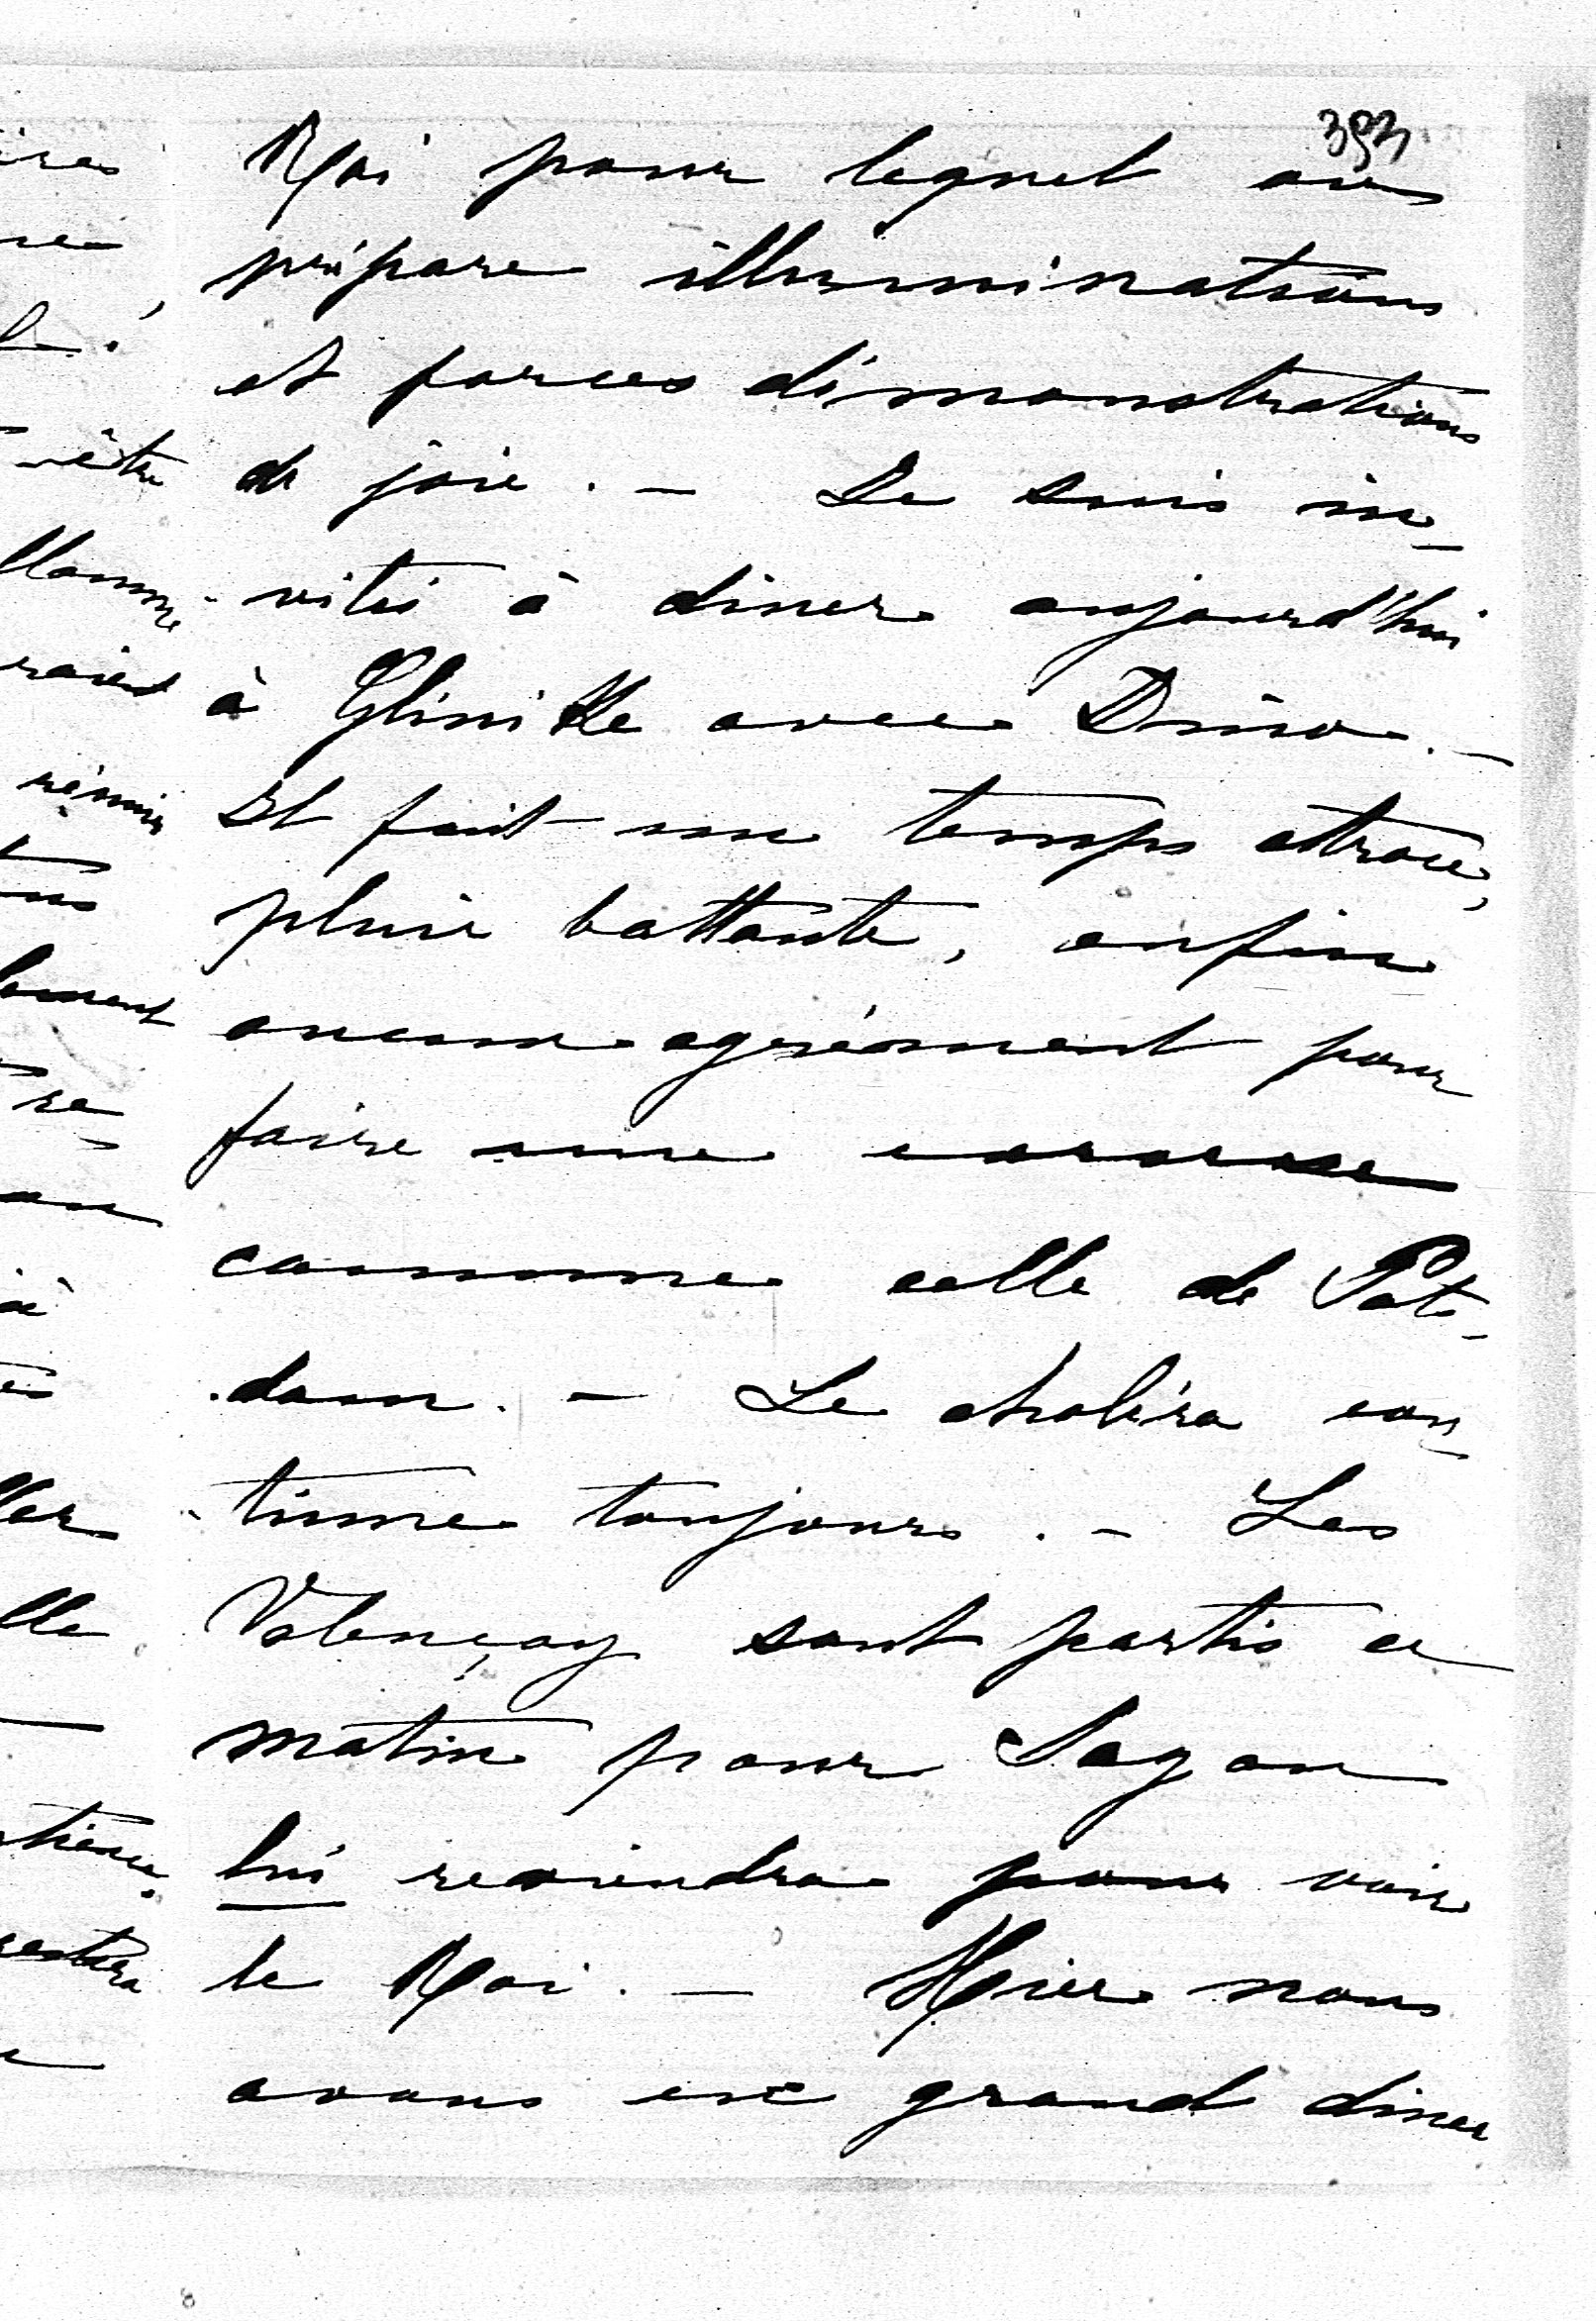 393
Roi pour lequel on
prépare illuminations
et forces démonstrations
de joie. - Je suis in-
-vité à diner aujourd'hui
à Glinike avec Dino. -
Il fait un temps atroce,
pluie battante, enfin
aucun agrément pour
faire une course
comme celle de Pots-
-dam. - Le choléra con-
-tinue toujours. - Les
Valençay sont partis ce
matin pour Sagan
lui reviendra pour voir
le Roi. - Hier nous
avons eu grand diner